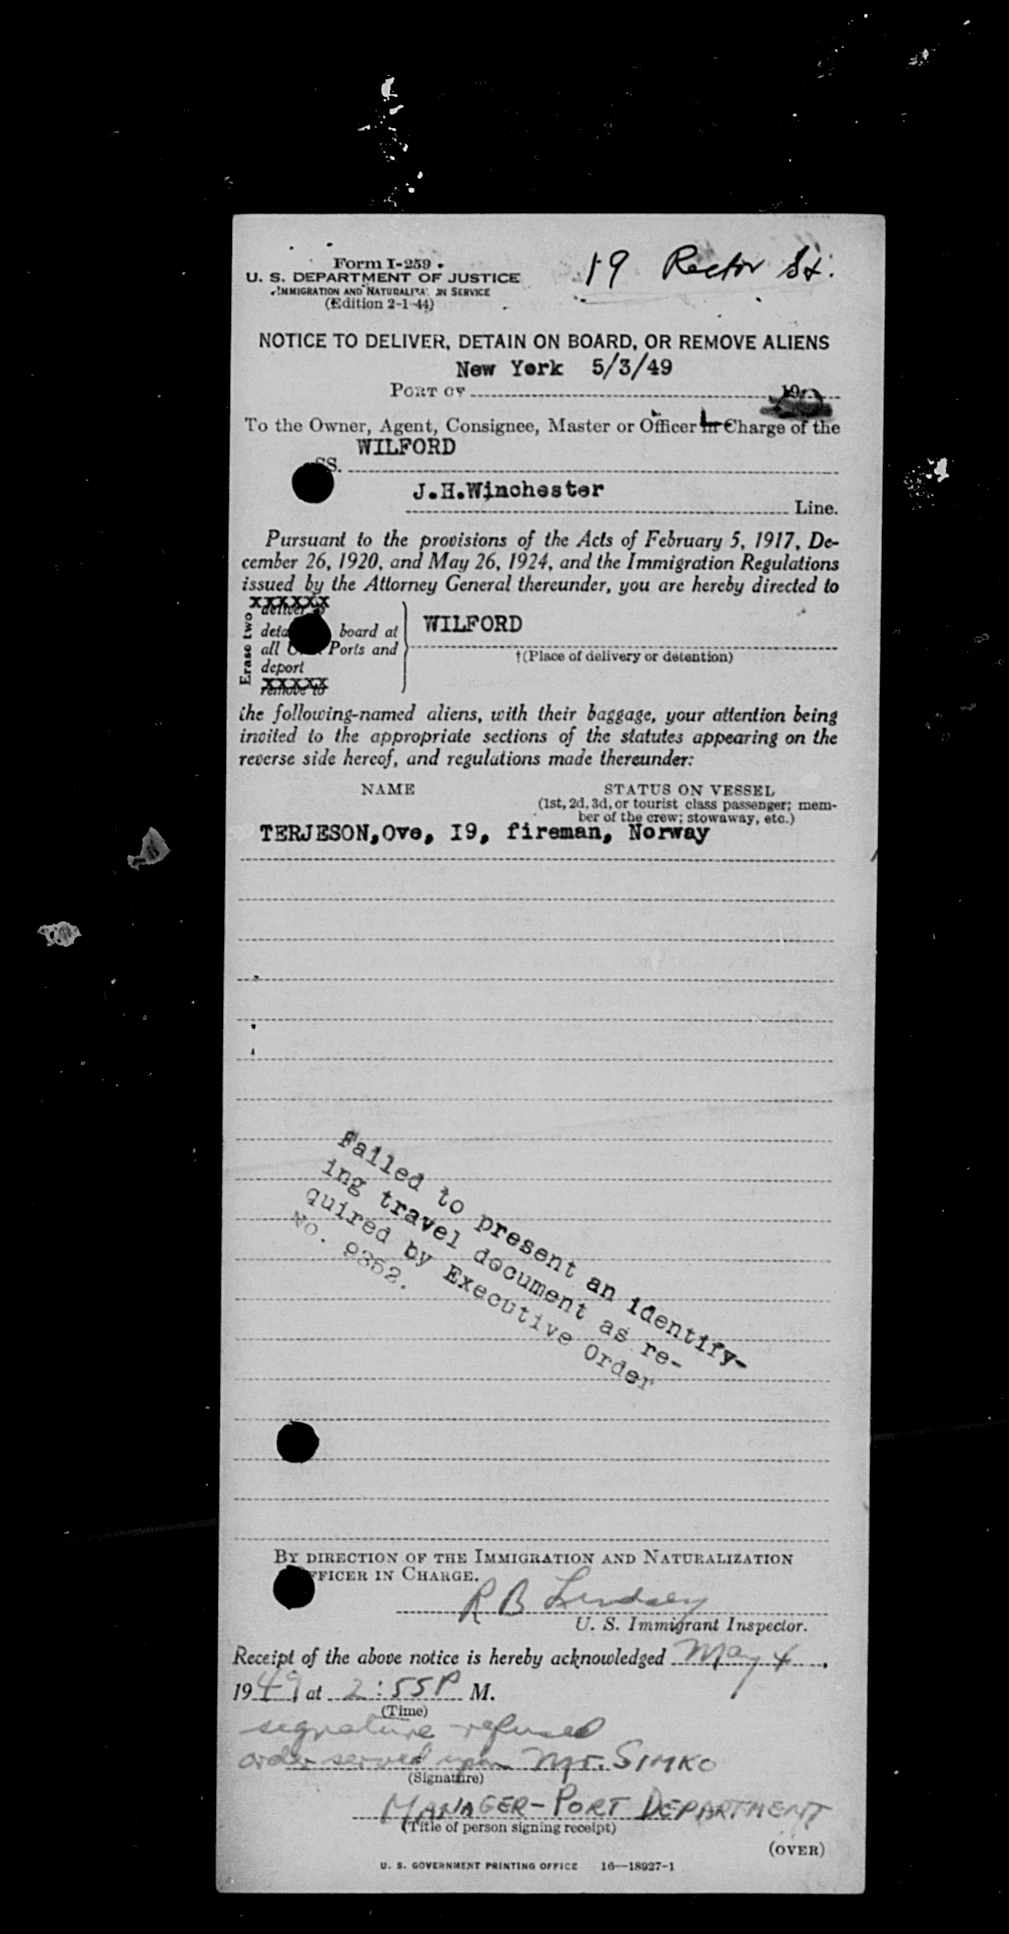 Form I-259
19 Rector St.
U. S. DEPARTMENT OF JUSTICE
IMMIGRATION AND NATURALIZA ON SERVICE
(Edition 2-1-44)
NOTICE TO DELIVER, DETAIN ON BOARD, OR REMOVE ALIENS
New York 5/3/49
PORT OF 19
To the Owner, Agent, Consignee, Master or Officer in Charge of the
WILFORD
SS.
J.H.Winchester
Line.
Pursuant to the provisions of the Acts of February 5, 1917, De-
cember 26, 1920, and May 26, 1924, and the Immigration Regulations
issued by the Attorney General thereunder, you are hereby directed to
Erase two
deliver to
deta board at
all U. Ports and
deport
remove to
WILFORD
†(Place of delivery or detention)
the following-named aliens, with their baggage, your attention being
invited to the appropriate sections of the statutes appearing on the
reverse side hereof, and regulations made thereunder:
NAME STATUS ON VESSEL
(1st, 2d, 3d, or tourist class passenger; mem-
ber of the crew; stowaway, etc.)
TERJESON,Ove, 19, fireman, Norway
Failed to present an identify-
ing travel document as re-
quired by Executive Order
No. 9352.
BY DIRECTION OF THE IMMIGRATION AND NATURALIZATION
FFICER IN CHARGE.
R B Lindsey
U. S. Immigrant Inspector.
Receipt of the above notice is hereby acknowledged May 4,
1949 at 2:55P M.
(Time)
signature refused
order served upon Mr. SIMKO
(Signature)
MANAGER-PORT DEPARTMENT
(Title of person signing receipt)
(OVER)
U. S. GOVERNMENT PRINTING OFFICE 16—18927-1